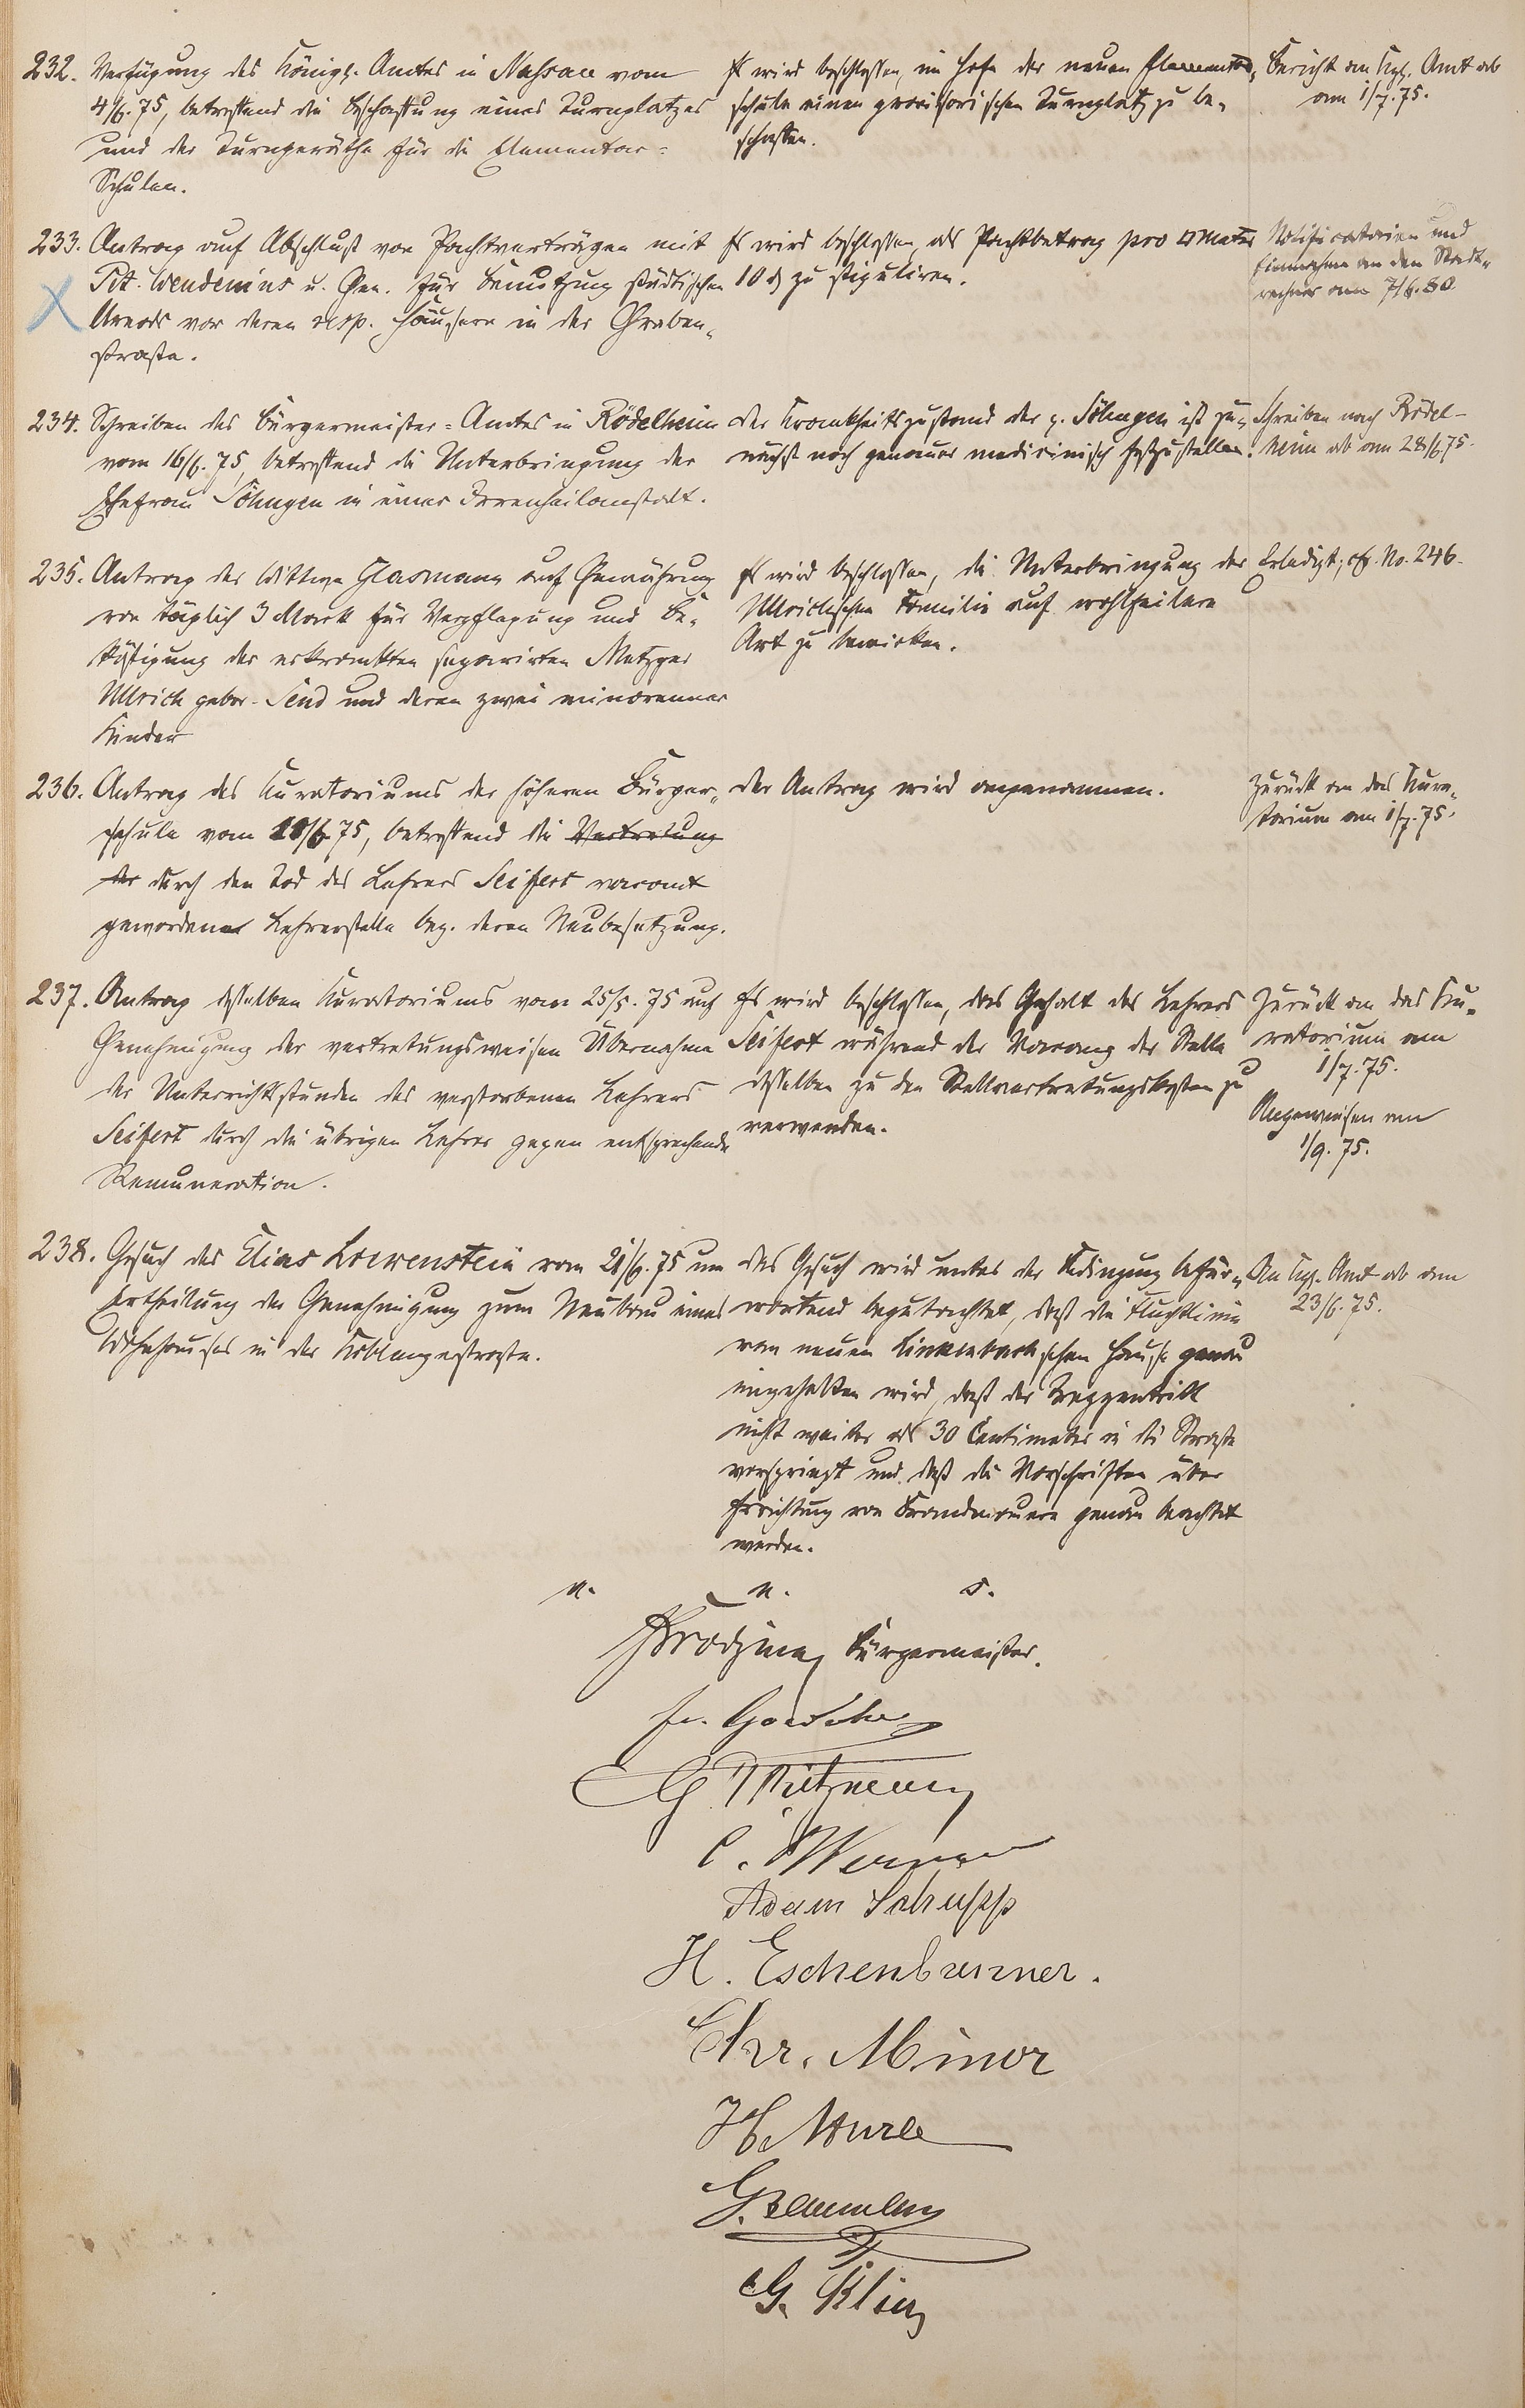 232. Verfügung des Königl. Amtes in Nassau vom
4/6. 75, betreffend die Beschaffung eines Turnplatzes
und der Turngeräthe für die Elementar=
Schulen.
Es wird beschlossen, im Hofe der neuen Elementar„
schule einen provisorischen Turnplatz zu be„
schaffen.
Bericht an Kgl. Amt ab
am 1/7. 75.
233. Antrag auf Abschluß von Pachtverträgen mit
Pet. Wendenius u. Gen. für Benutzung städtischen
Areals vor deren resp. Häusern in der Graben„
straße.
Es wird beschlossen, als Pachtbetrag pro □Meter
10 ₰ zu stipuliren.
Notificatorien und
Einnahme an den Stadt„
rechner am 7/6. 80
234. Schreiben des Bürgermeister=Amtes in Rödelheim
vom 16/6. 75, betreffend die Unterbringung der
Ehefrau Söhngen in einer Irrenheilanstalt.
Der Krankheitszustand der p. Söhngen ist zu„
nächst noch genauer medicinisch festzustellen.
Schreiben nach Rödel-
heim ab am 28/6 75.
235. Antrag der Wittwe Glasmann auf Gewährung
von täglich 3 Mark für Verpflegung und Be„
köstigung der erkrankten separirten Metzger
Ullrich gebor. Send und deren zwei minorenner
Kinder
Es wird beschlossen, die Unterbringung der
Ullrichschen Familie auf wohlfeilere
Art zu bewirken.
Erledigt; cfr. No. 246.
236. Antrag des Kuratoriums der höheren Bürger„
schule vom 18/6 75, betreffend die Vertretung
der durch den Tod des Lehrers Seifert vacant
gewordenen Lehrerstelle bez. deren Neubesetzung.
Der Antrag wird angenommen.
Zurück an das Kura„
torium am 1/7. 75.
237. Antrag desselben Kuratoriums vom 25/5. 75 auf
Genehmigung der vertretungsweisen Übernahme
der Unterrichtsstunden des verstorbenen Lehrers
Seifert durch die übrigen Lehrer gegen entsprechende
Remuneration.
Es wird beschlossen, das Gehalt des Lehrers
Seifert während der Vacanz der Stelle
desselben zu den Stellvertretungskosten zu
verwenden.
Zurück an das Ku„
ratorium am
1/7. 75.
Angewiesen am
1/9. 75.
238. Gesuch des Elias Loewenstein vom 21/6. 75 um
Ertheilung der Genehmigung zum Neubau eines
Wohnhauses in der Koblenzerstraße.
Das Gesuch wird unter der Bedingung befür„
wortend begutachtet, daß die Fluchtlinie
vom neuen Linkenbachschen Hause genau
eingehalten wird, daß der Treppentritt
nicht weiter als 30 Centimeter in die Straße
vorspringt und daß die Vorschriften über
Errichtung von Brandmauern genau beachtet
werden.
An Kgl. Amt ab am
23/6. 75.
Bürgermeister.
C. Werner
Adam Schupp
H. Eschenbrenner.
Chr. Minor